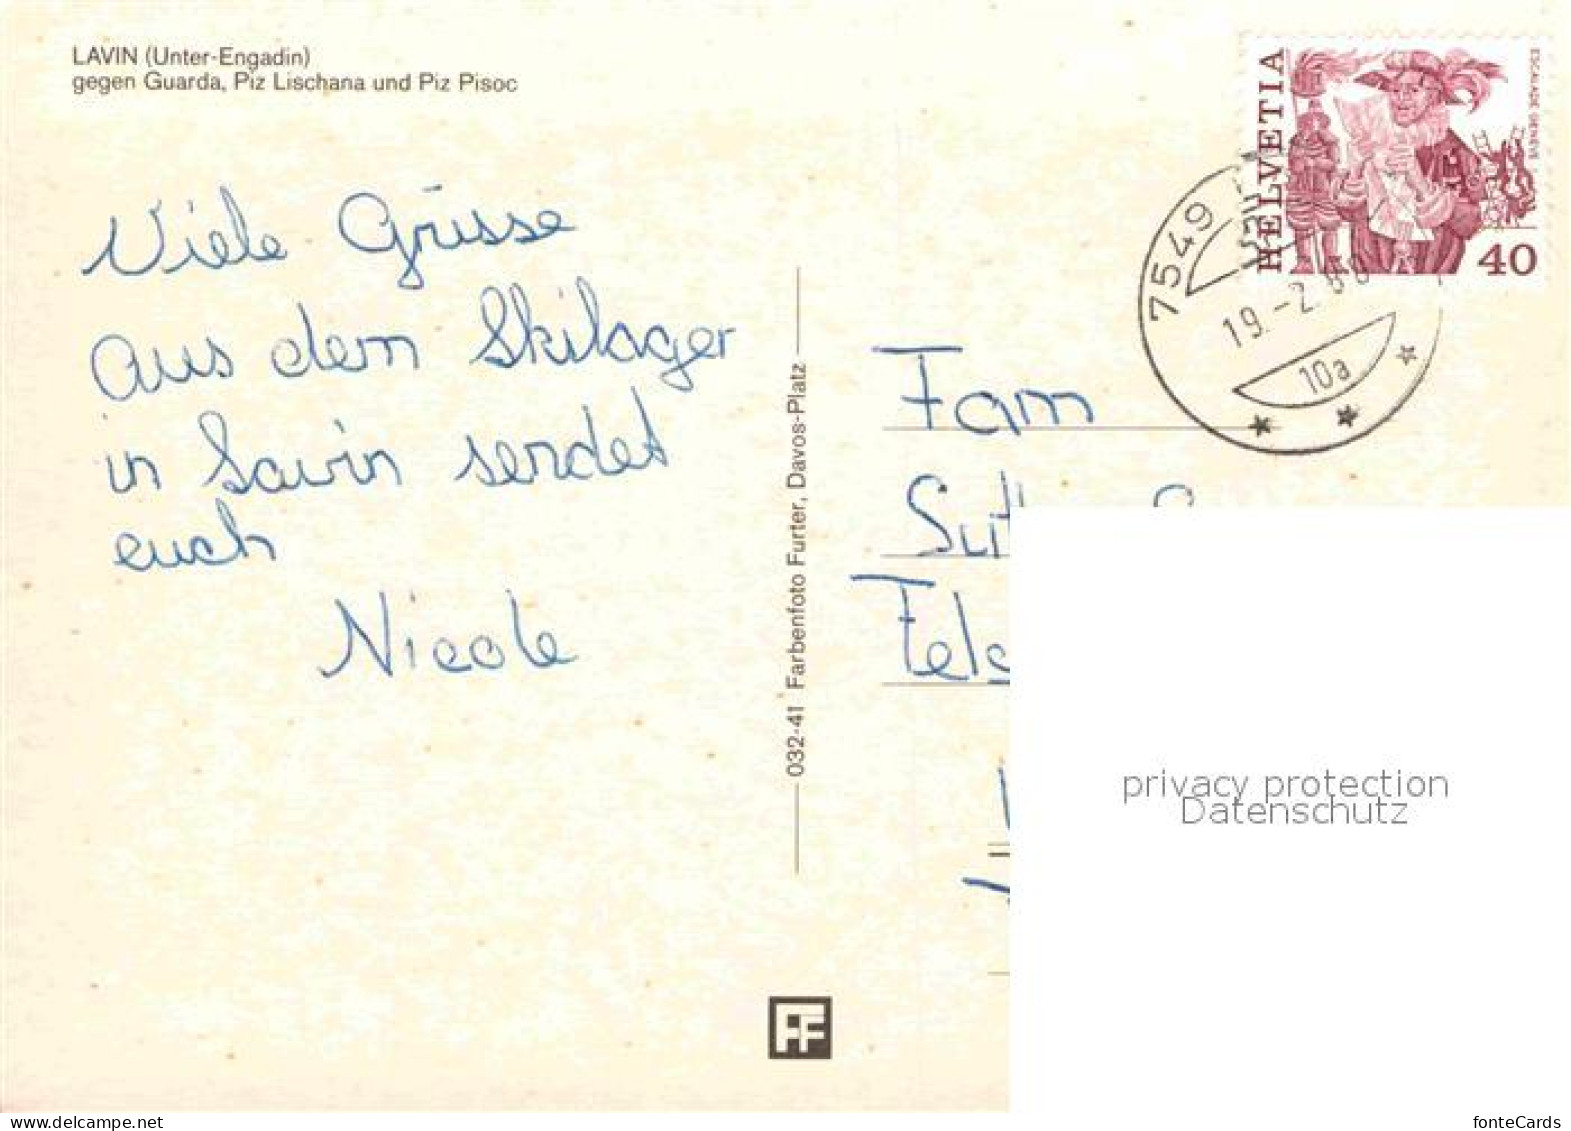 LAVIN (Unter-Engadin)
gegen Guarda, Piz Lischana und Piz Pisoc
Viele Grüsse
aus dem Skilager
in Lavin sendet
euch
Nicole
032-41 Farbenfoto Furter, Davos-Platz
HELVETIA
ESCALADE GENÈVE
40
7549
19.-2.
10a
Fam
FF
privacy protection
Datenschutz
delcampe.net
fonteCards